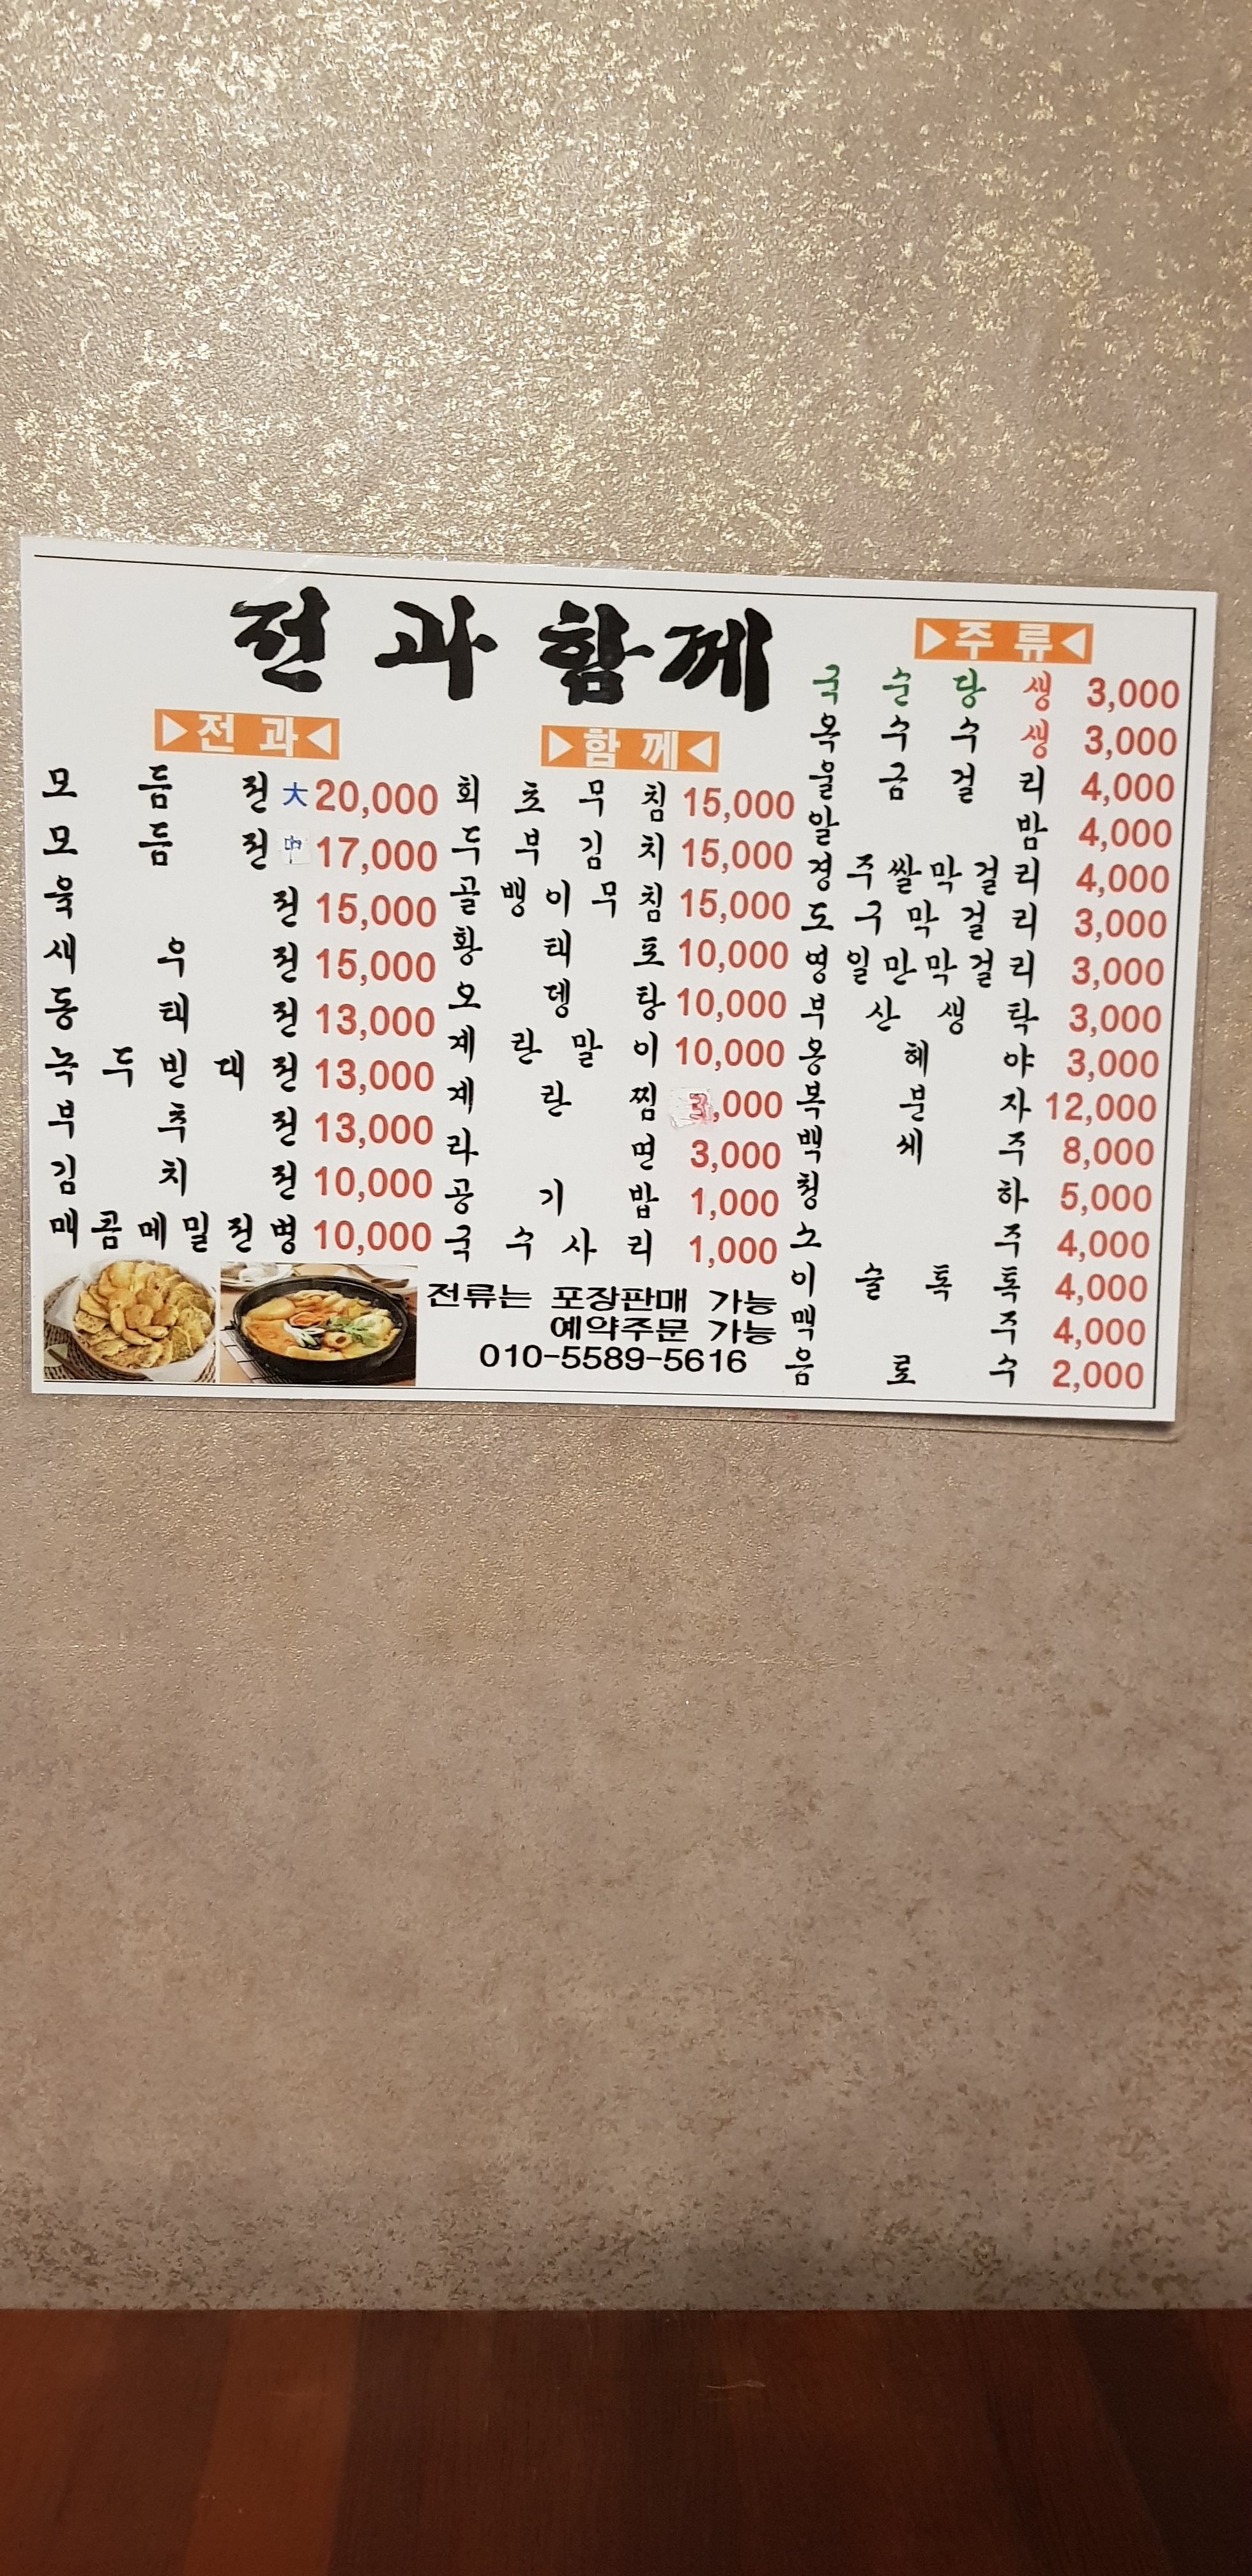 전과함께
▷전과◁
모듬전 大 20,000
모듬전 中 17,000
육전 15,000
새우전 15,000
동태전 13,000
녹두빈대전 13,000
부추전 13,000
김치전 10,000
매콤메밀전병 10,000
▷함께◁
회초무침 15,000
두부김치 15,000
골뱅이무침 15,000
황태포 10,000
오뎅탕 10,000
계란말이 10,000
계란찜 3,000
라면 3,000
공기밥 1,000
국수사리 1,000
전류는 포장판매 가능
예약주문 가능
010-5589-5616
▷주류◁
국순당생 3,000
옥수수생 3,000
울금걸리 4,000
알밤 4,000
경주쌀막걸리 4,000
도구막걸리 3,000
영일만막걸리 3,000
부산생탁 3,000
옹헤야 3,000
복분자 12,000
백세주 8,000
청하 5,000
소주 4,000
이슬톡톡 4,000
맥주 4,000
음료수 2,000